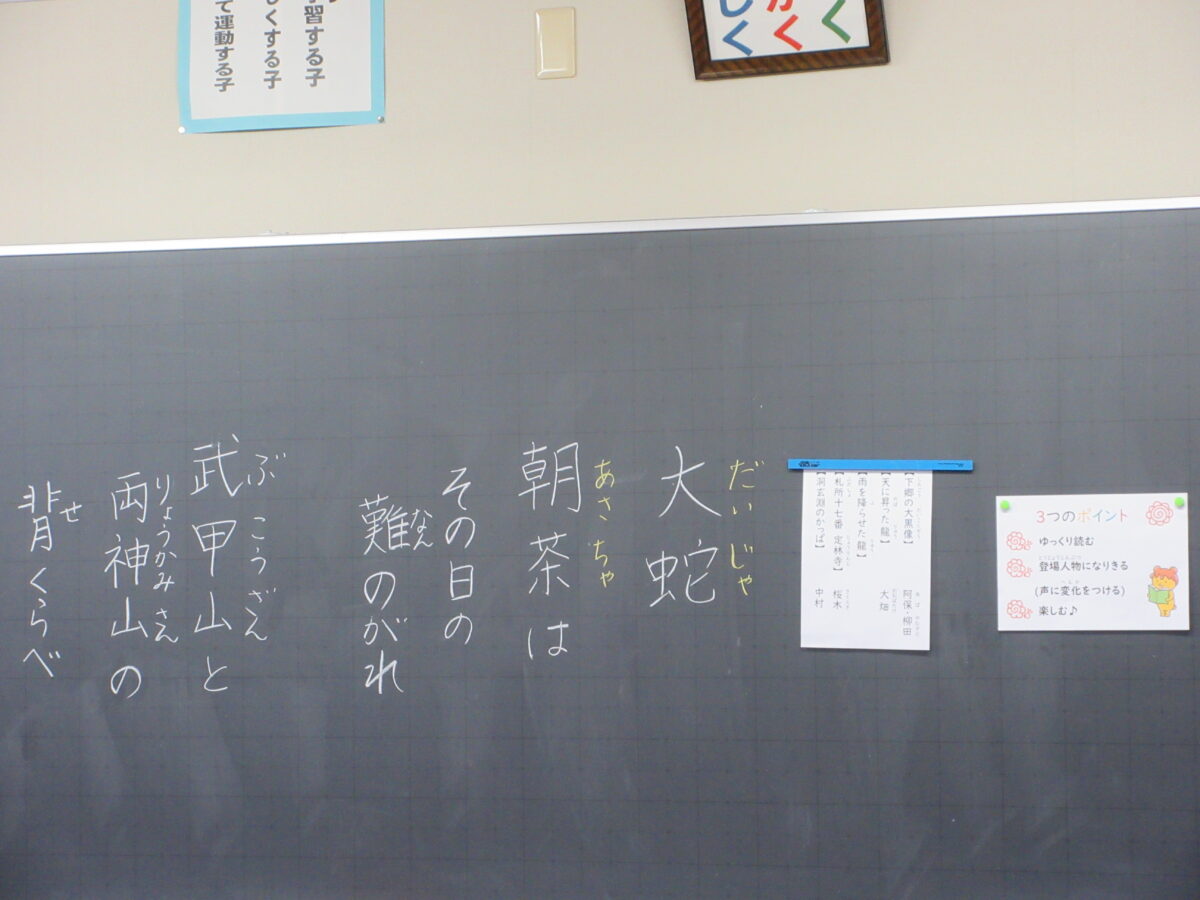 習する子
しくする子
て運動する子
しく
かく
く
大蛇
だいじゃ
朝茶は
あさちゃ
その日の
難のがれ
なん
武甲山と
ぶこうざん
両神山の
りょうかみさん
背くらべ
せ
【下郷の大黒像】 阿保・柳田
【天に昇った龍】 大畑
【雨を降らせた龍】
【札所十七番 定林寺】 桜木
【洞玄淵のかっぱ】 中村
3つのポイント
ゆっくり読む
登場人物になりきる
とうじょうじんぶつ
(声に変化をつける)
へんか
楽しむ♪